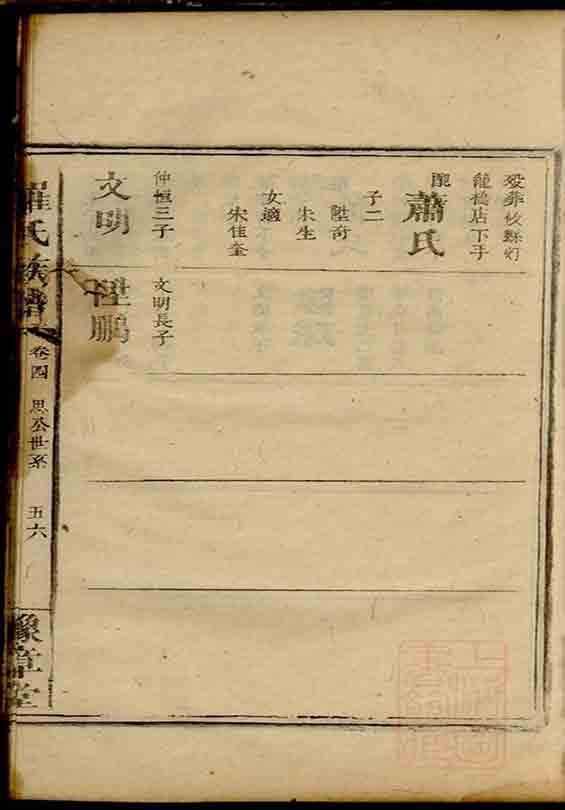 歿葬攸縣灯
龍橋店下手
配
蕭氏
子二
陞奇
朱生
女適
朱佳奎
仲恒三子
文明
文明長子
陞鵬
羅氏族譜
卷四
思公世系
五六
豫章堂